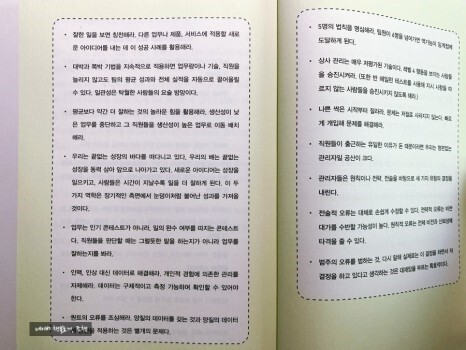 잘한 일을 보면 칭찬해라. 다른 업무나 제품, 서비스에 적용할 새로
운 아이디어를 내는 데 이 성공 사례를 활용해라.
대박과 쪽박 기법을 지속적으로 적용하면 업무량이나 기술, 직원을
늘리지 않고도 팀의 평균 성과와 전체 실적을 자동으로 끌어올릴
수 있다. 일관성은 탁월한 사람들의 요술 방망이다.
평균보다 약간 더 잘하는 것의 놀라운 힘을 활용해라. 생산성이 낮
은 업무를 중단하고 그 직원들을 생산성이 높은 업무로 이동 배치
해라.
우리는 끝없는 성장의 바다를 떠다니고 있다. 우리의 배는 끝없는
성장을 동력 삼아 앞으로 나아가고 있다. 새로운 아이디어는 성장을
일으키고, 사람들은 시간이 지날수록 일을 더 잘하게 된다. 이 두
가지 역학은 장기적인 측면에서 눈덩이처럼 불어난 성과를 가져올
것이다.
업무는 인기 콘테스트가 아니라, 일의 완수 여부를 따지는 콘테스트
다. 직원들을 판단할 때는 그럴듯한 말을 하는지가 아니라 업무를
잘하는지를 봐라.
인맥, 인상 대신 데이터로 해결해라. 개인적 경험에 의존한 관리를
자제해라. 데이터는 구체적이고 측정 가능하며 확인할 수 있어야
한다.
퀀트의 오류를 조심해라. 양질의 데이터를 갖는 것과 양질의 데이터
를 적용하는 것은 별개의 문제다.
5명의 법칙을 명심해라. 팀원이 4명을 넘어가면 역기능이 임계점에
도달하게 된다.
상사 관리는 매우 저평가된 기술이다. 레벨 4 행동을 보이는 사람들
을 승진시켜라. (또한 반 페일린 테스트를 사용해 지시 사항을 따
르지 않는 사람들을 승진시키지 않도록 해라.)
나쁜 싹은 시작부터 잘라라. 문제는 저절로 사라지지 않는다. 빠르
게 개입해 문제를 해결해라.
직원들이 출근하는 유일한 이유가 돈 때문이라면 우리는 평판없는
관리자일 공산이 크다.
관리자들은 원칙이나 전략, 전술을 바탕으로 세 가지 유형의 결정을
내린다.
전술적 오류는 대체로 손쉽게 수정할 수 있다. 전략적 오류는 비싼
대가를 수반할 가능성이 높다. 원칙적 오류는 전체 비전과 신뢰성에
타격을 줄 수 있다.
범주의 오류를 범하는 것, 다시 말해 실제로는 이 결정을 하면서 저
결정을 하고 있다고 생각하는 것은 대재앙을 부르는 특효약이다.